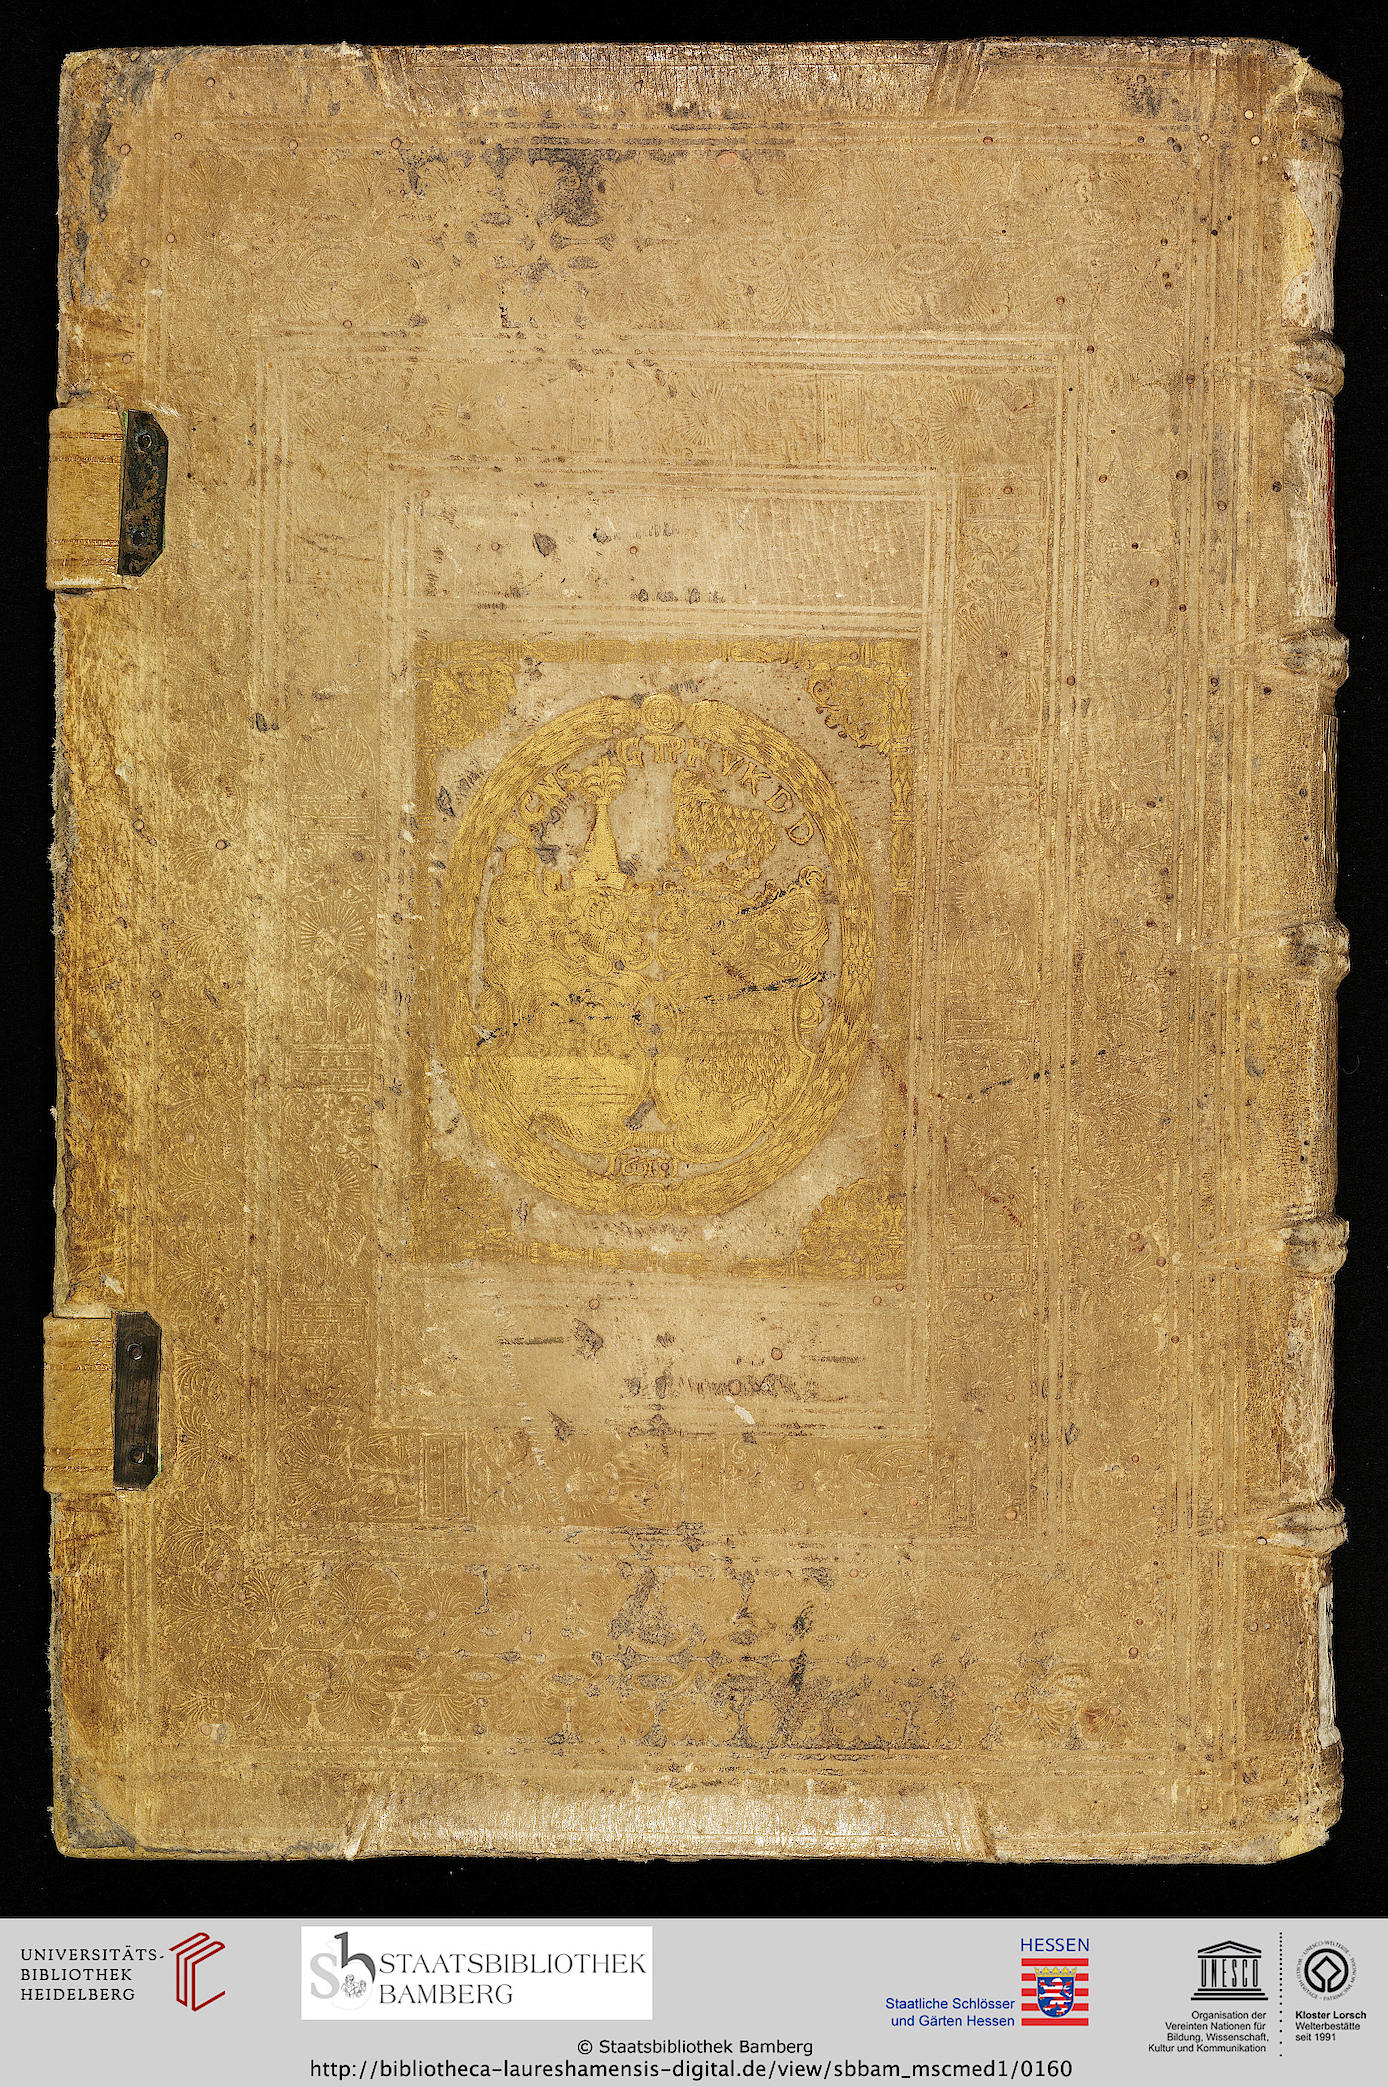 CNS GTPHVKDD
1611
UNIVERSITÄTS-
BIBLIOTHEK
HEIDELBERG
STAATSBIBLIOTHEK
BAMBERG
HESSEN
Staatliche Schlösser
und Gärten Hessen
UNESCO
Organisation der
Vereinten Nationen für
Bildung, Wissenschaft,
Kultur und Kommunikation
Kloster Lorsch
Welterbestätte
seit 1991
© Staatsbibliothek Bamberg
http://bibliotheca-laureshamensis-digital.de/view/sbbam_mscmed1/0160